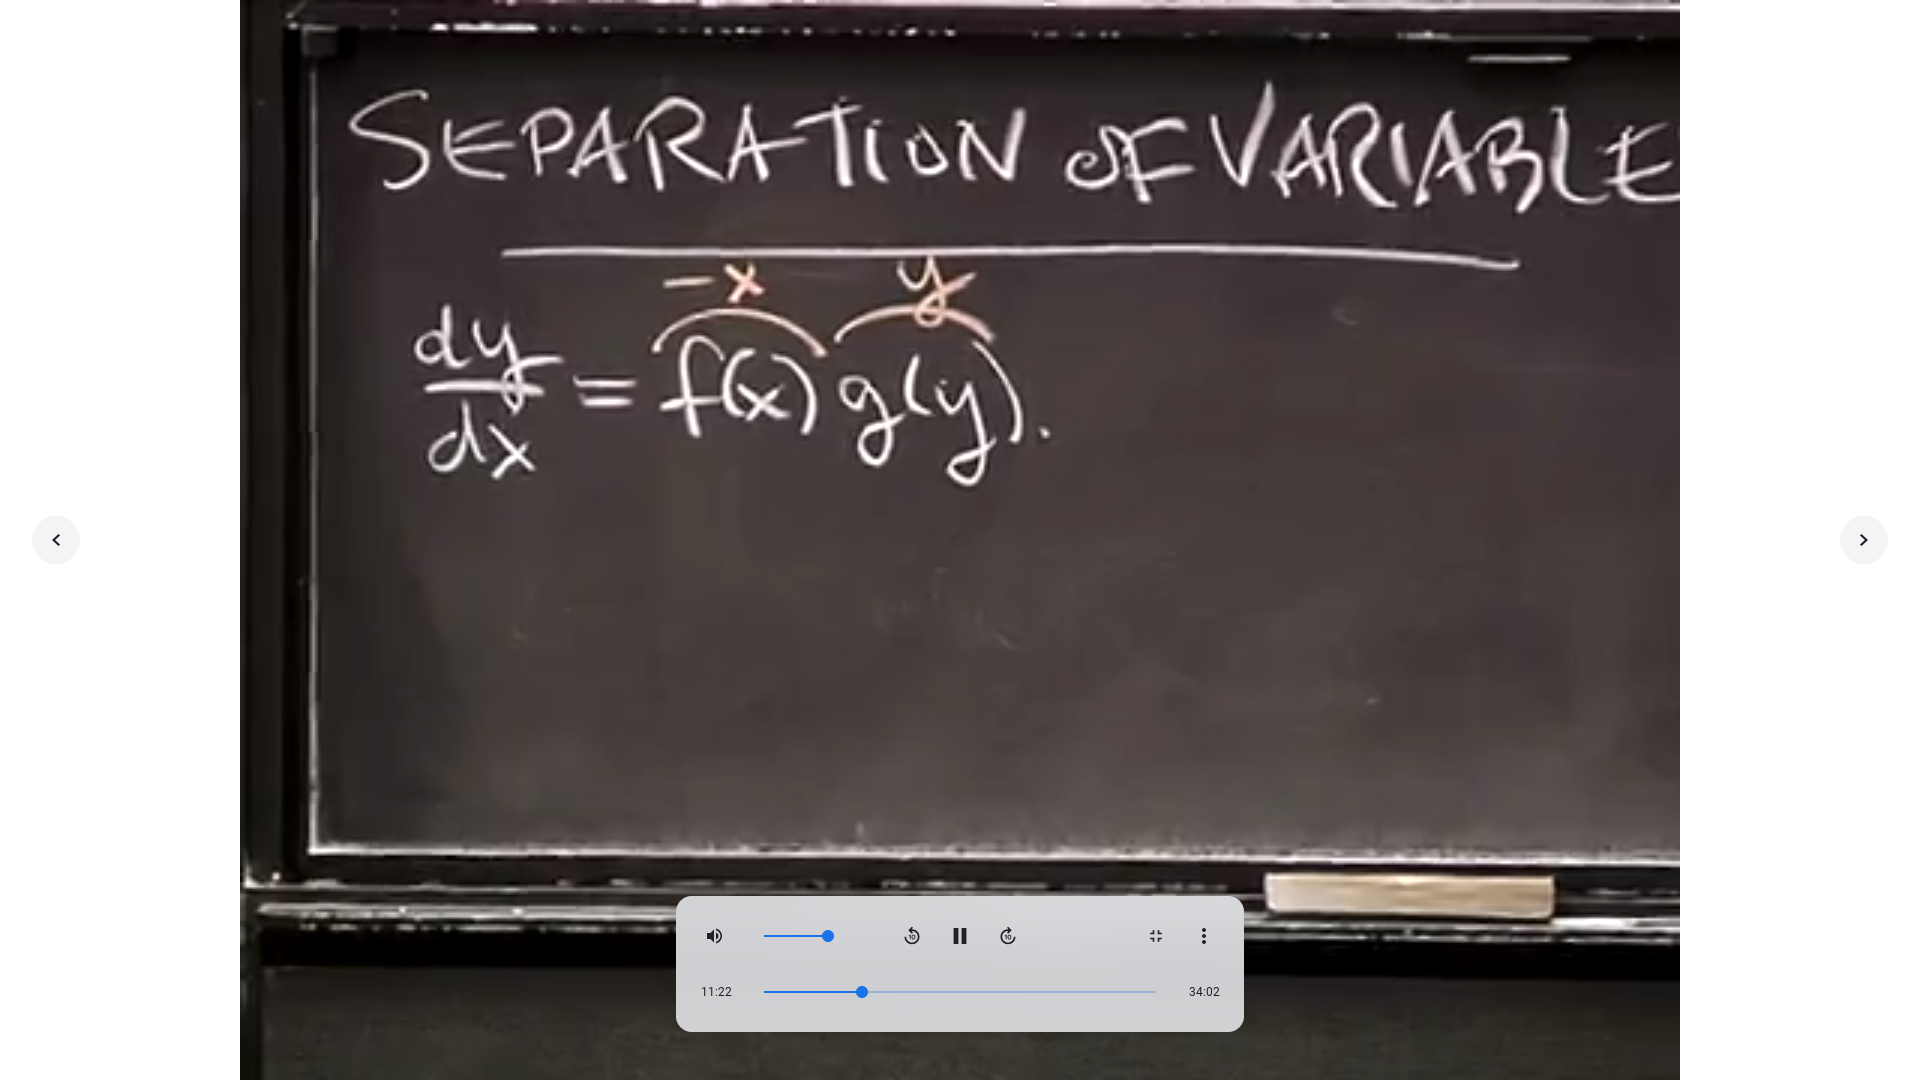 SEPARATION OF VARIABLE
-x y
dy/dx = f(x) g(y).
10 10
11:22 34:02